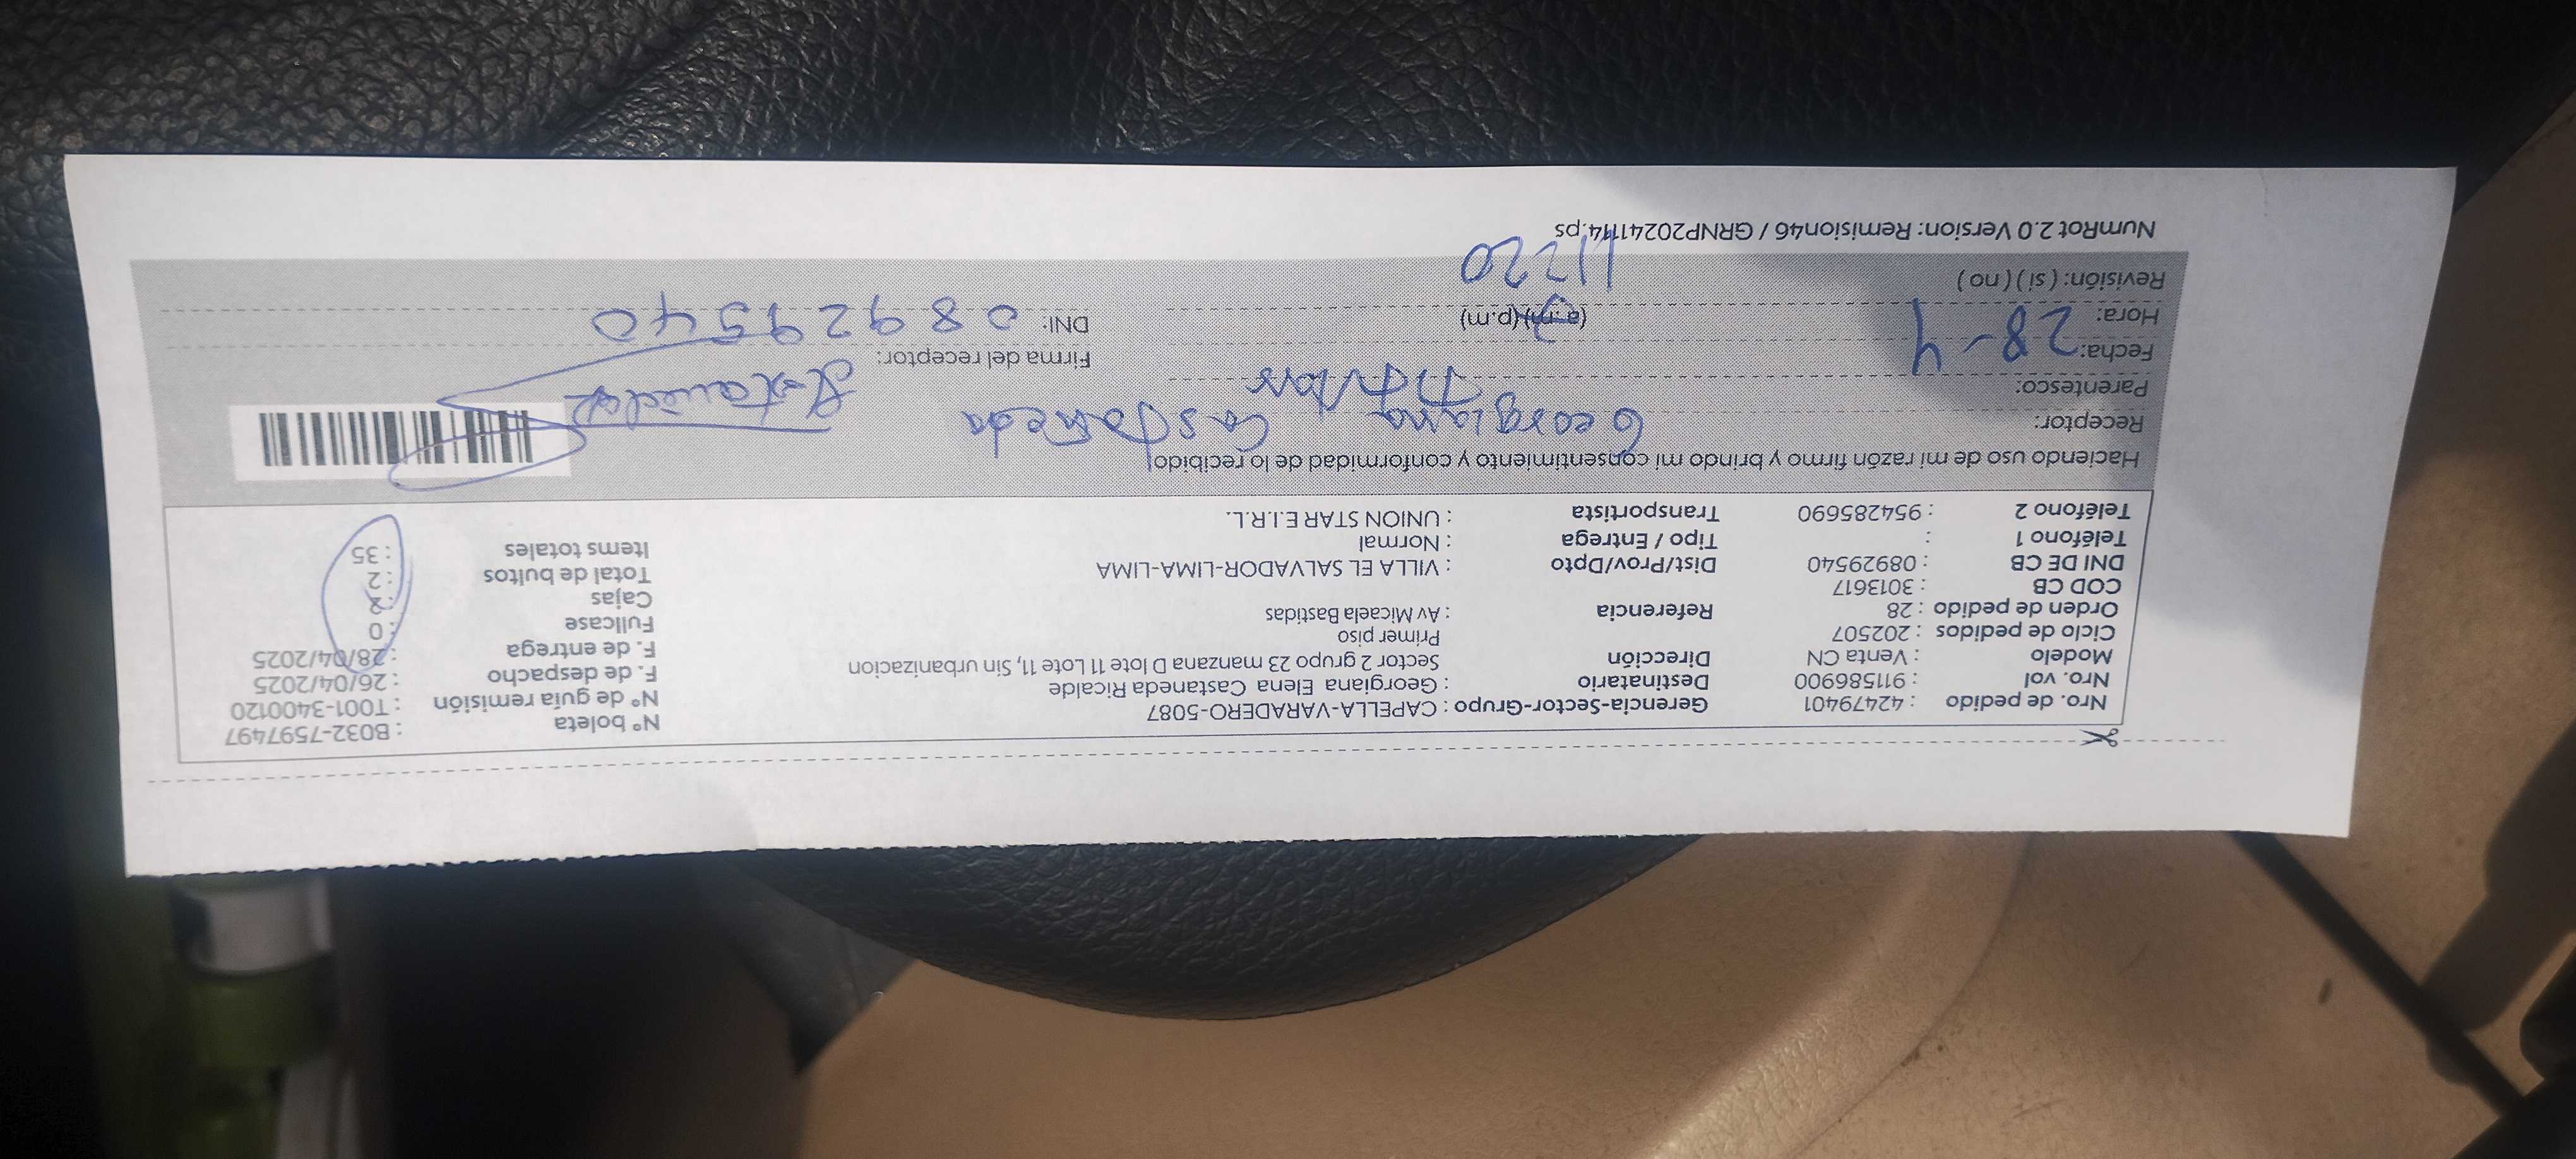 Nro. de pedido : 42479401 Gerencia-Sector-Grupo : CAPELLA-VARADERO-5087 N° boleta : B032-7597497
Nro. vol : 911586900 Destinatario : Georgiana Elena Castaneda Ricalde N° de guía remisión : T001-3400120
Modelo : Venta CN Dirección Sector 2 grupo 23 manzana D lote 11 Lote 11, Sin urbanizacion F. de despacho : 26/04/2025
Ciclo de pedidos : 202507 Primer piso F. de entrega : 28/04/2025
Orden de pedido : 28 Referencia : Av Micaela Bastidas Fullcase : 0
COD CB : 3013617 Cajas : 2
DNI DE CB : 08929540 Dist/Prov/Dpto : VILLA EL SALVADOR-LIMA-LIMA Total de bultos : 2
Teléfono 1 : Tipo / Entrega : Normal Items totales : 35
Teléfono 2 : 954285690 Transportista : UNION STAR E.I.R.L.
Haciendo uso de mi razón firmo y brindo mi consentimiento y conformidad de lo recibido
Receptor: Georgiana Castañeda
Parentesco: Titular
Fecha: 28-4 Firma del receptor:
Hora: (a.m)(p.m) DNI: 08929540
Revisión: ( si ) ( no ) 11:20
NumRot 2.0 Version: Remision46 / GRNP20241114.ps